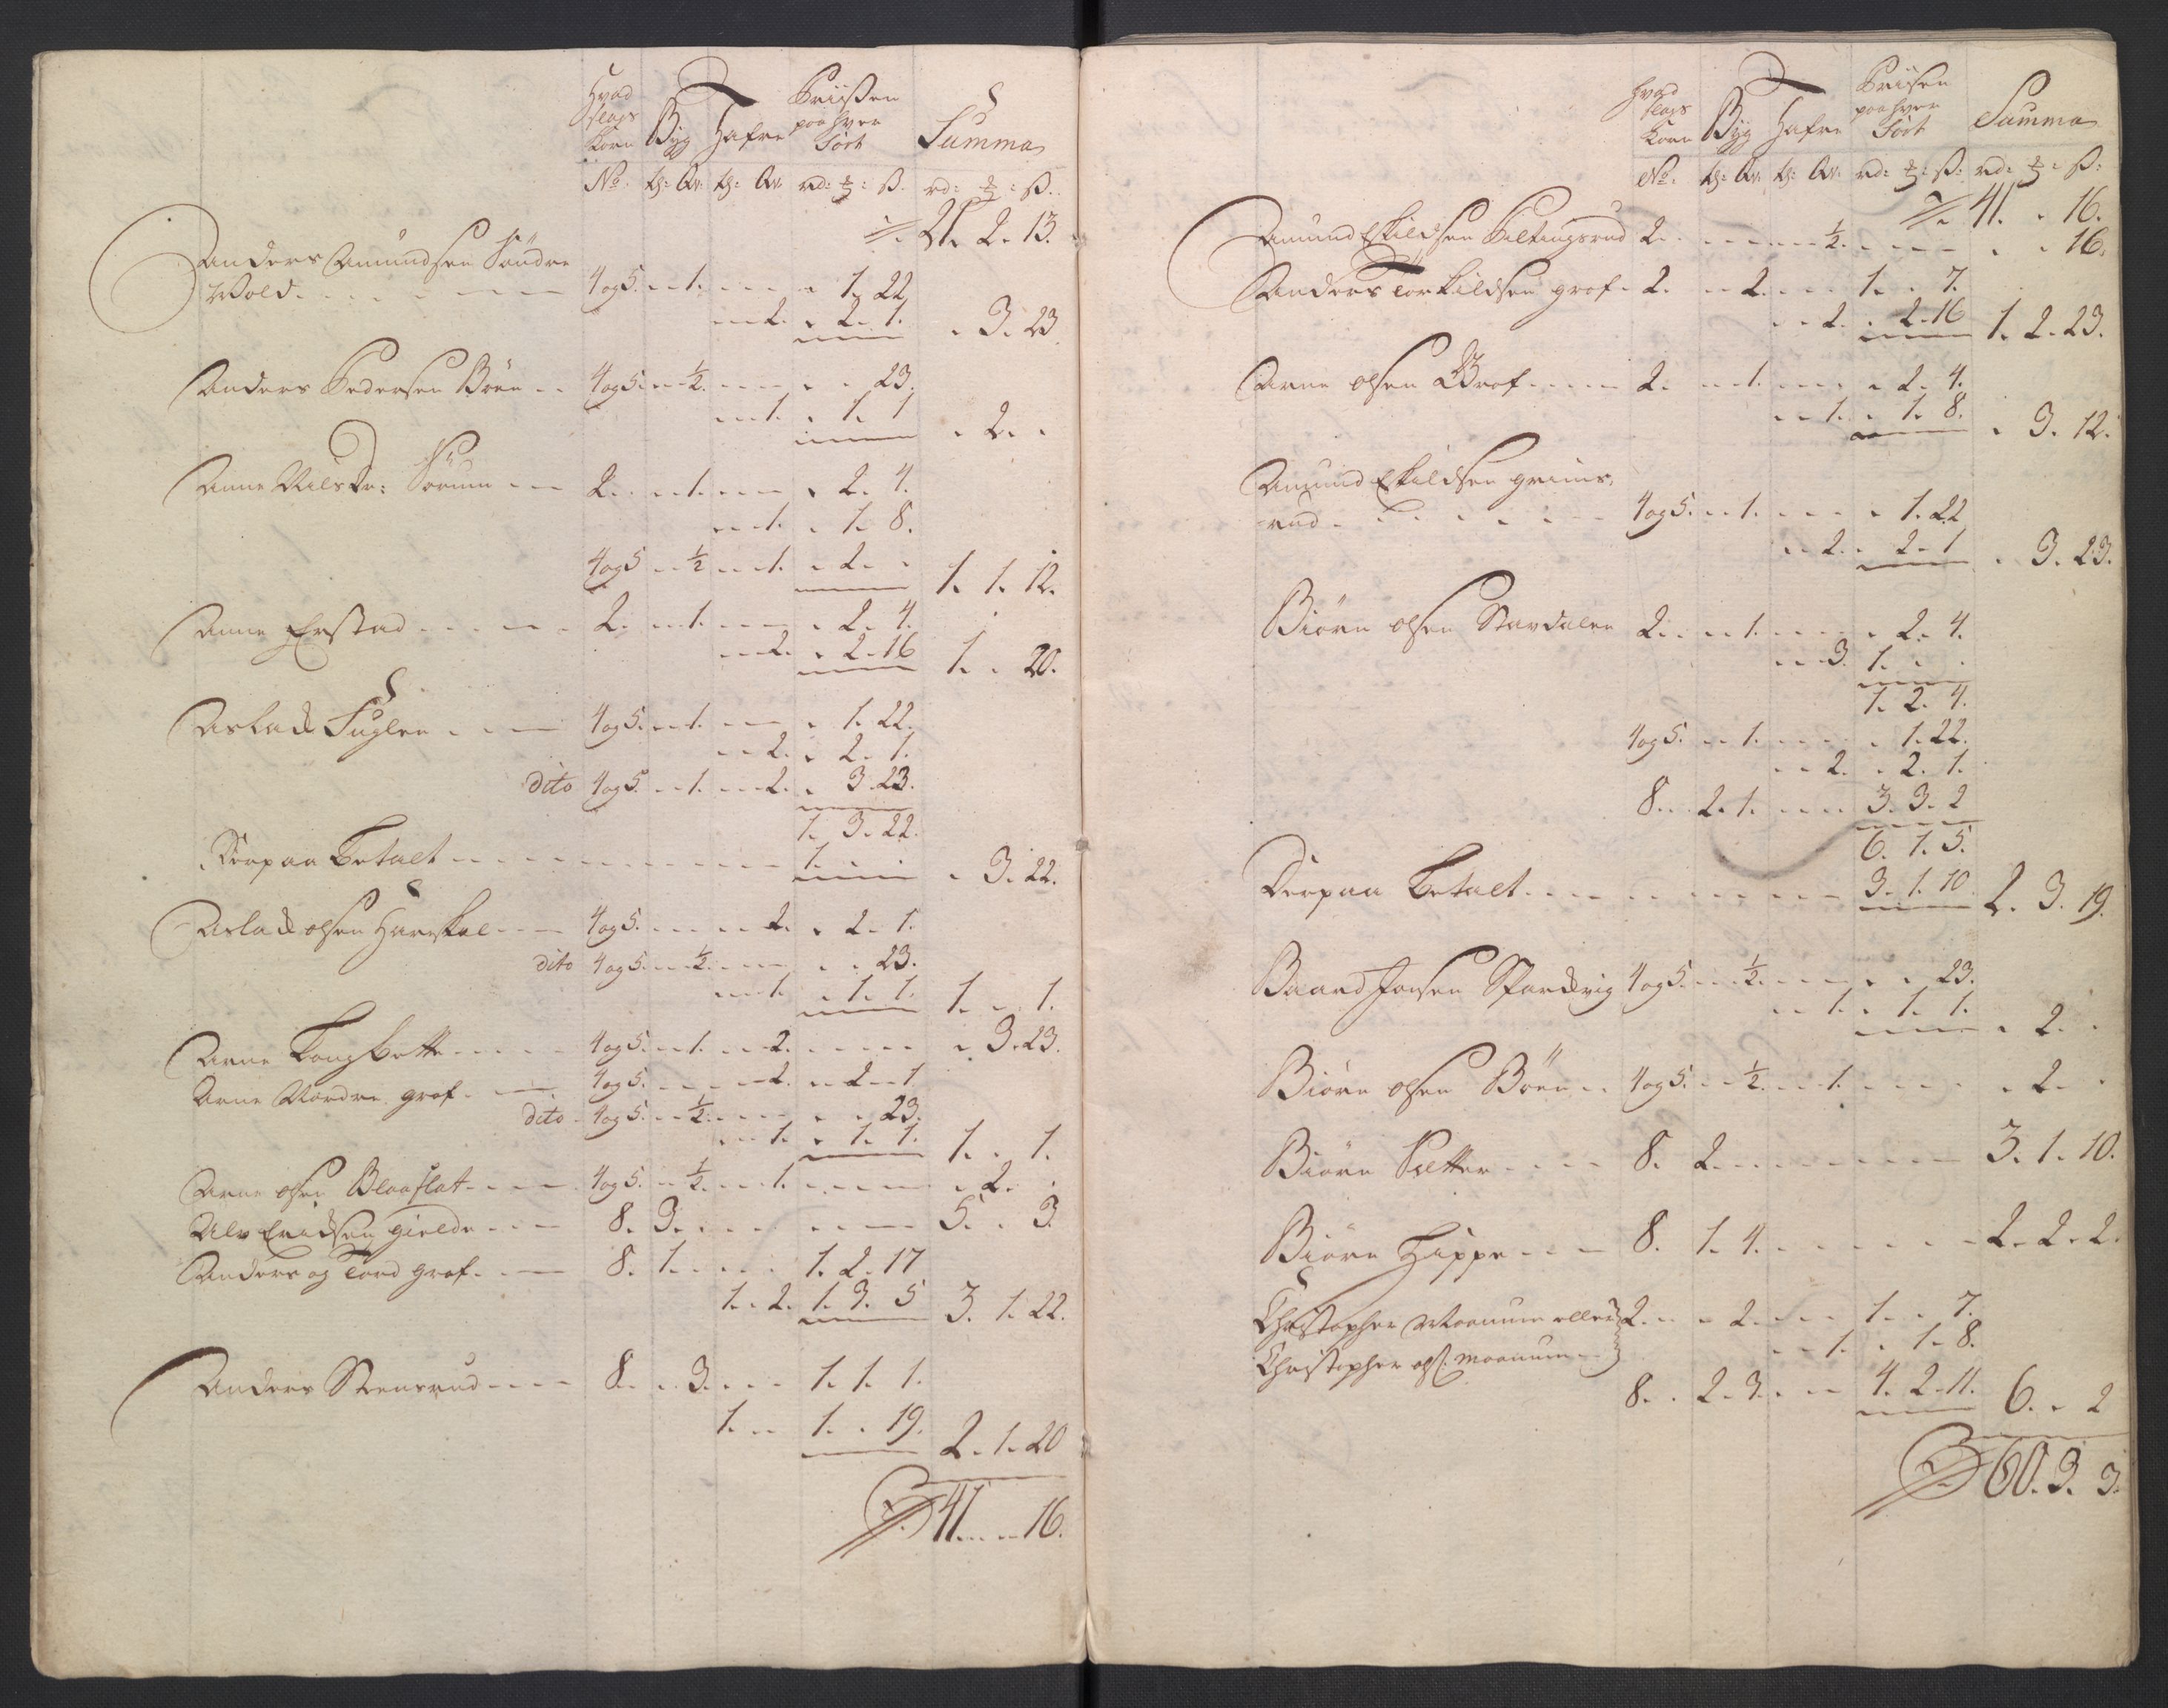 Hvad slags Korn Byg Hafre Priisen paa hver Sort Summa
No. tr: qr: tr: qr: rd: ℥: ß. rd: ℥: ß.
21. 2. 13.
Anders Amundsen Söndre
Wold 4 og 5. 1. 1. 22
2. 2. 1. 3. 23
Anders Pedersen Böen 4 og 5. ½. 23.
1. 1. 1 2.
Anne Nils Dr: Sörum 2. 1. 2. 4.
1. 1. 8.
4 og 5 ½ 1. 2. 1. 1. 12.
Anne Erstad 2. 1. 2. 4.
2. 2. 16 1. 20.
Aslack Fuglen 4 og 5. 1. 1. 22.
2. 2. 1.
dito 4 og 5. 1. 2. 3. 23.
1. 3. 22.
Derpaa Betalt 1. 3. 22.
Aslack olsen 4 og 5. 2. 2. 1.
dito 4 og 5. ½. 23.
1. 1. 1. 1. 1.
Arne 4 og 5. 1. 2. 3. 23.
Arne Nordre grof 4 og 5. 2. 2. 1
dito 4 og 5. ½. 23.
1. 1. 1. 1. 1.
Arne olsen Blaaflat 4 og 5. ½. 1. 2.
Ulv gielde 8. 3. 5. 3
Anders og Tord grof 8. 1. 1. 2. 17
1. 2. 1. 3. 5 3. 1. 22.
Anders Stensrud 8. 3. 1. 1. 1.
1. 1. 19. 2. 1. 20
41. 16.
Hvad slags Korn Byg Hafre Priisen paa hver Sort Summa
No. tr: qr: tr: qr: rd: ℥: ß: rd: ℥: ß:
41. 16.
Amund Eskildsen 2. ½. 16.
Anders Torkildsen grof 2. 2. 1. 7.
2. 2. 16 1. 2. 23.
Arne olsen Grof 2. 1. 2. 4.
1. 1. 8. 3. 12.
Amund Eskildsen grims-
rud 4 og 5. 1. 1. 22
2. 2. 1 3. 23.
Biörn olsen Stavdalen 2. 1. 2. 4.
3 1.
1. 2. 4.
4 og 5. 1. 1. 22.
2. 2. 1.
8. 2. 1. 3. 3. 2
6. 1. 5.
Derpaa Betalt 3. 1. 10 2. 3. 19.
Baard Jonsen 4 og 5. ½. 23.
1. 1. 1. 2.
Biörn olsen Böen 4 og 5. ½. 1. 2.
Biörn 8. 2. 3. 1. 10.
Biörn 8. 1. 4. 2. 2. 2.
Christopher Moanum eller 2. 2. 1. 7.
Christopher ols: Moanum 1. 1. 8.
8. 2. 3. 4. 2. 11. 6. 2
60. 3. 3.